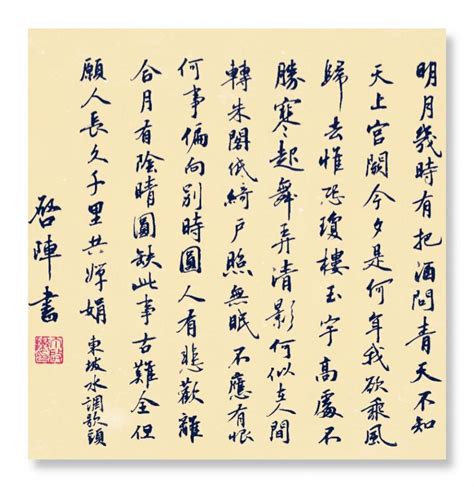 明月幾時有把酒問青天不知
天上宮闕今夕是何年我欲乘風
歸去惟恐瓊樓玉宇高處不
勝寒起舞弄清影何似在人間
轉朱閣低綺户照無眠不應有恨
何事偏向別時圓人有悲歡離
合月有陰晴圓缺此事古難全但
願人長久千里共嬋娟
東坡水調歌頭
启陣書